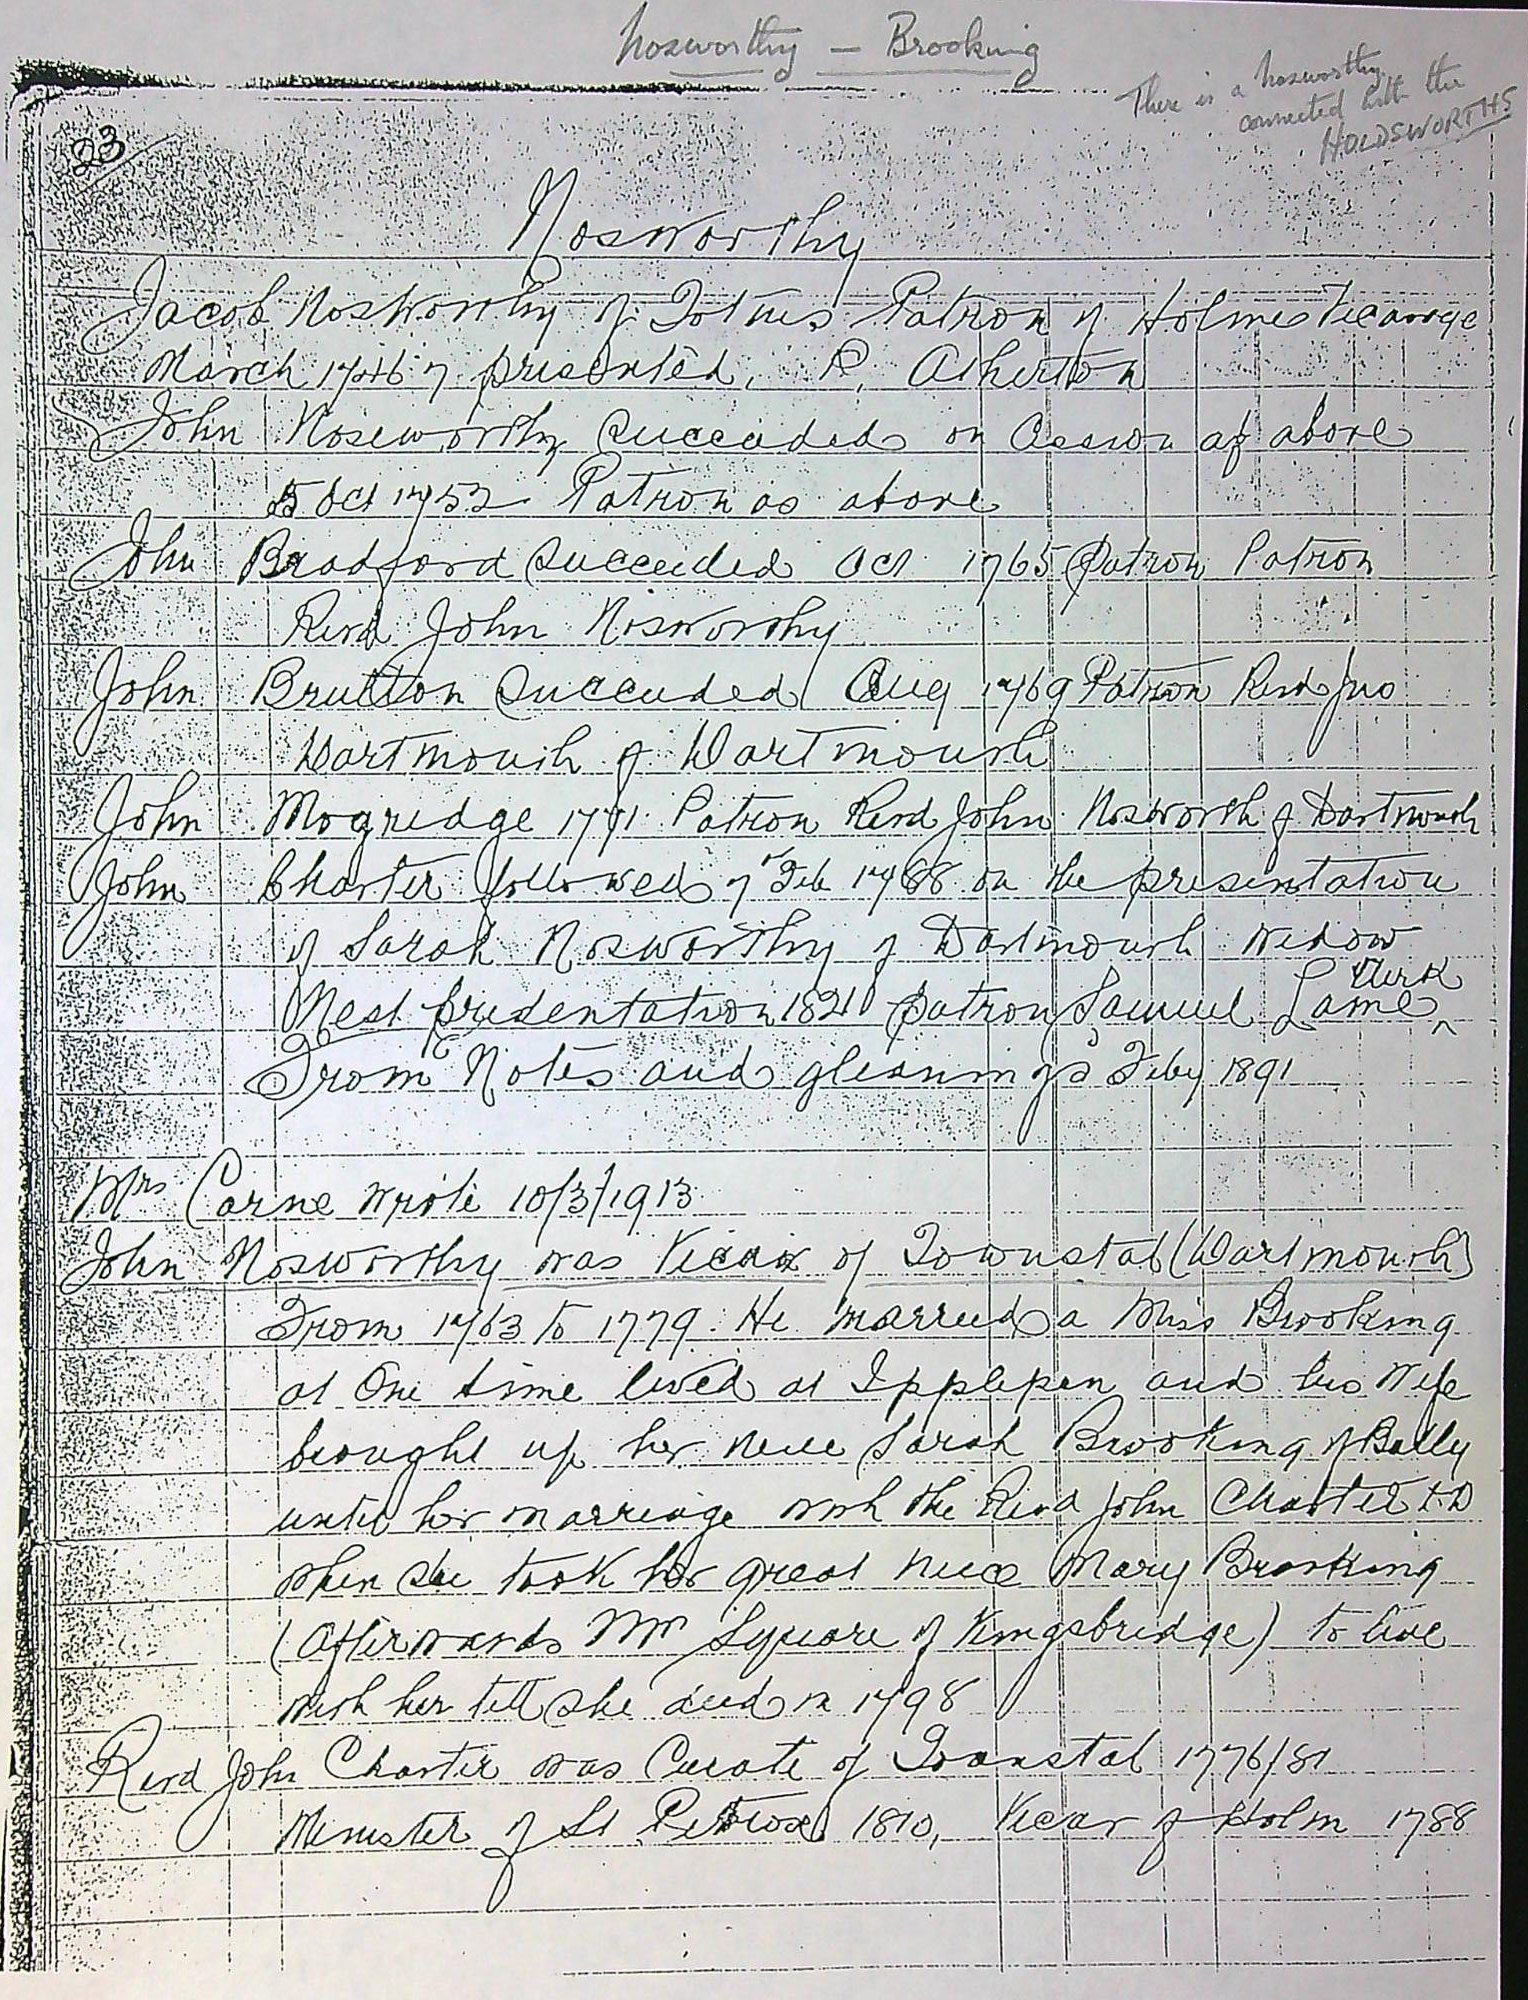 Nosworthy — Brooking
There is a Nosworthy
connected with the
HOLDSWORTHS
23
Nosworthy
Jacob Nosworthy of Totnes Patron of Holme Vicarage
March 1746/7 presented, P. Atherton
John Noseworthy succeeded on Cession of above
5 Oct 1752 Patron as above
John Bradford succeeded Oct 1765 Patron Patron
Revd John Nosworthy
John Brutton succeeded Aug 1769 Patron Revd Jno
Dartmouth of Dartmouth
John Mogridge 1771 Patron Revd John Nosworth of Dartmouth
John Charter followed 7 Feb 1788 on the presentation
of Sarah Nosworthy of Dartmouth widow
Clerk
Next presentation 1821 patron Samuel Lame
From Notes and gleanings Feby 1891
Mrs Carne wrote 10/3/1913
John Nosworthy was Vicar of Townstal (Dartmouth)
From 1763 to 1779. He married a Miss Brooking
at One time lived at Ipplepen and his Wife
brought up her niece Sarah Brooking of Bally
until her marriage with the Revd John Charter
when she took her great niece Mary Brooking
(afterwards Mrs Square of Kingsbridge) to live
with her till she died in 1798
Revd John Charter was Curate of Townstal 1776/81
Minister of St Petrox 1810, Vicar of Holm 1788